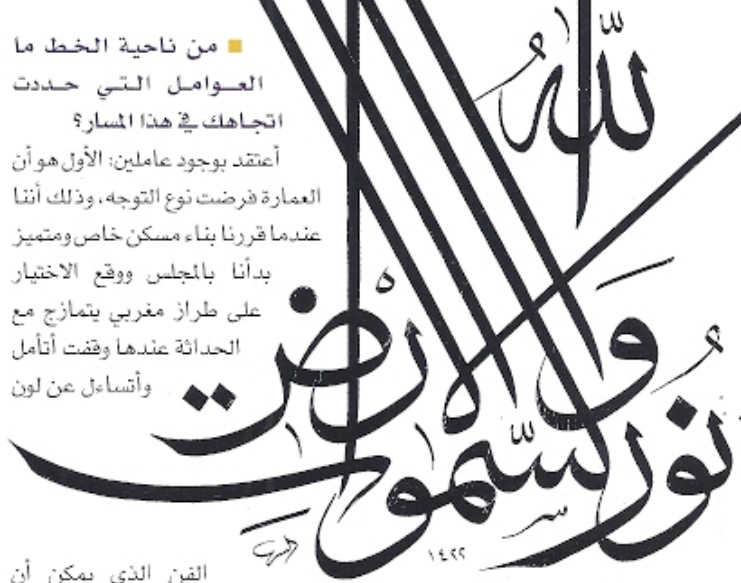 من ناحية الخط ما
العوامل التي حددت
اتجاهك في هذا المسار؟
أعتقد بوجود عاملين: الأول هو أن
العمارة فرضت نوع التوجه، وذلك أننا
عندما قررنا بناء مسكن خاص ومتميز
بدأنا بالمجلس ووقع الاختيار
على طراز مغربي يتمازج مع
الحداثة عندها وقفت أتأمل
وأتساءل عن لون
الفن الذي يمكن أن
الله
نور السموات
والأرض
١٤٢٢